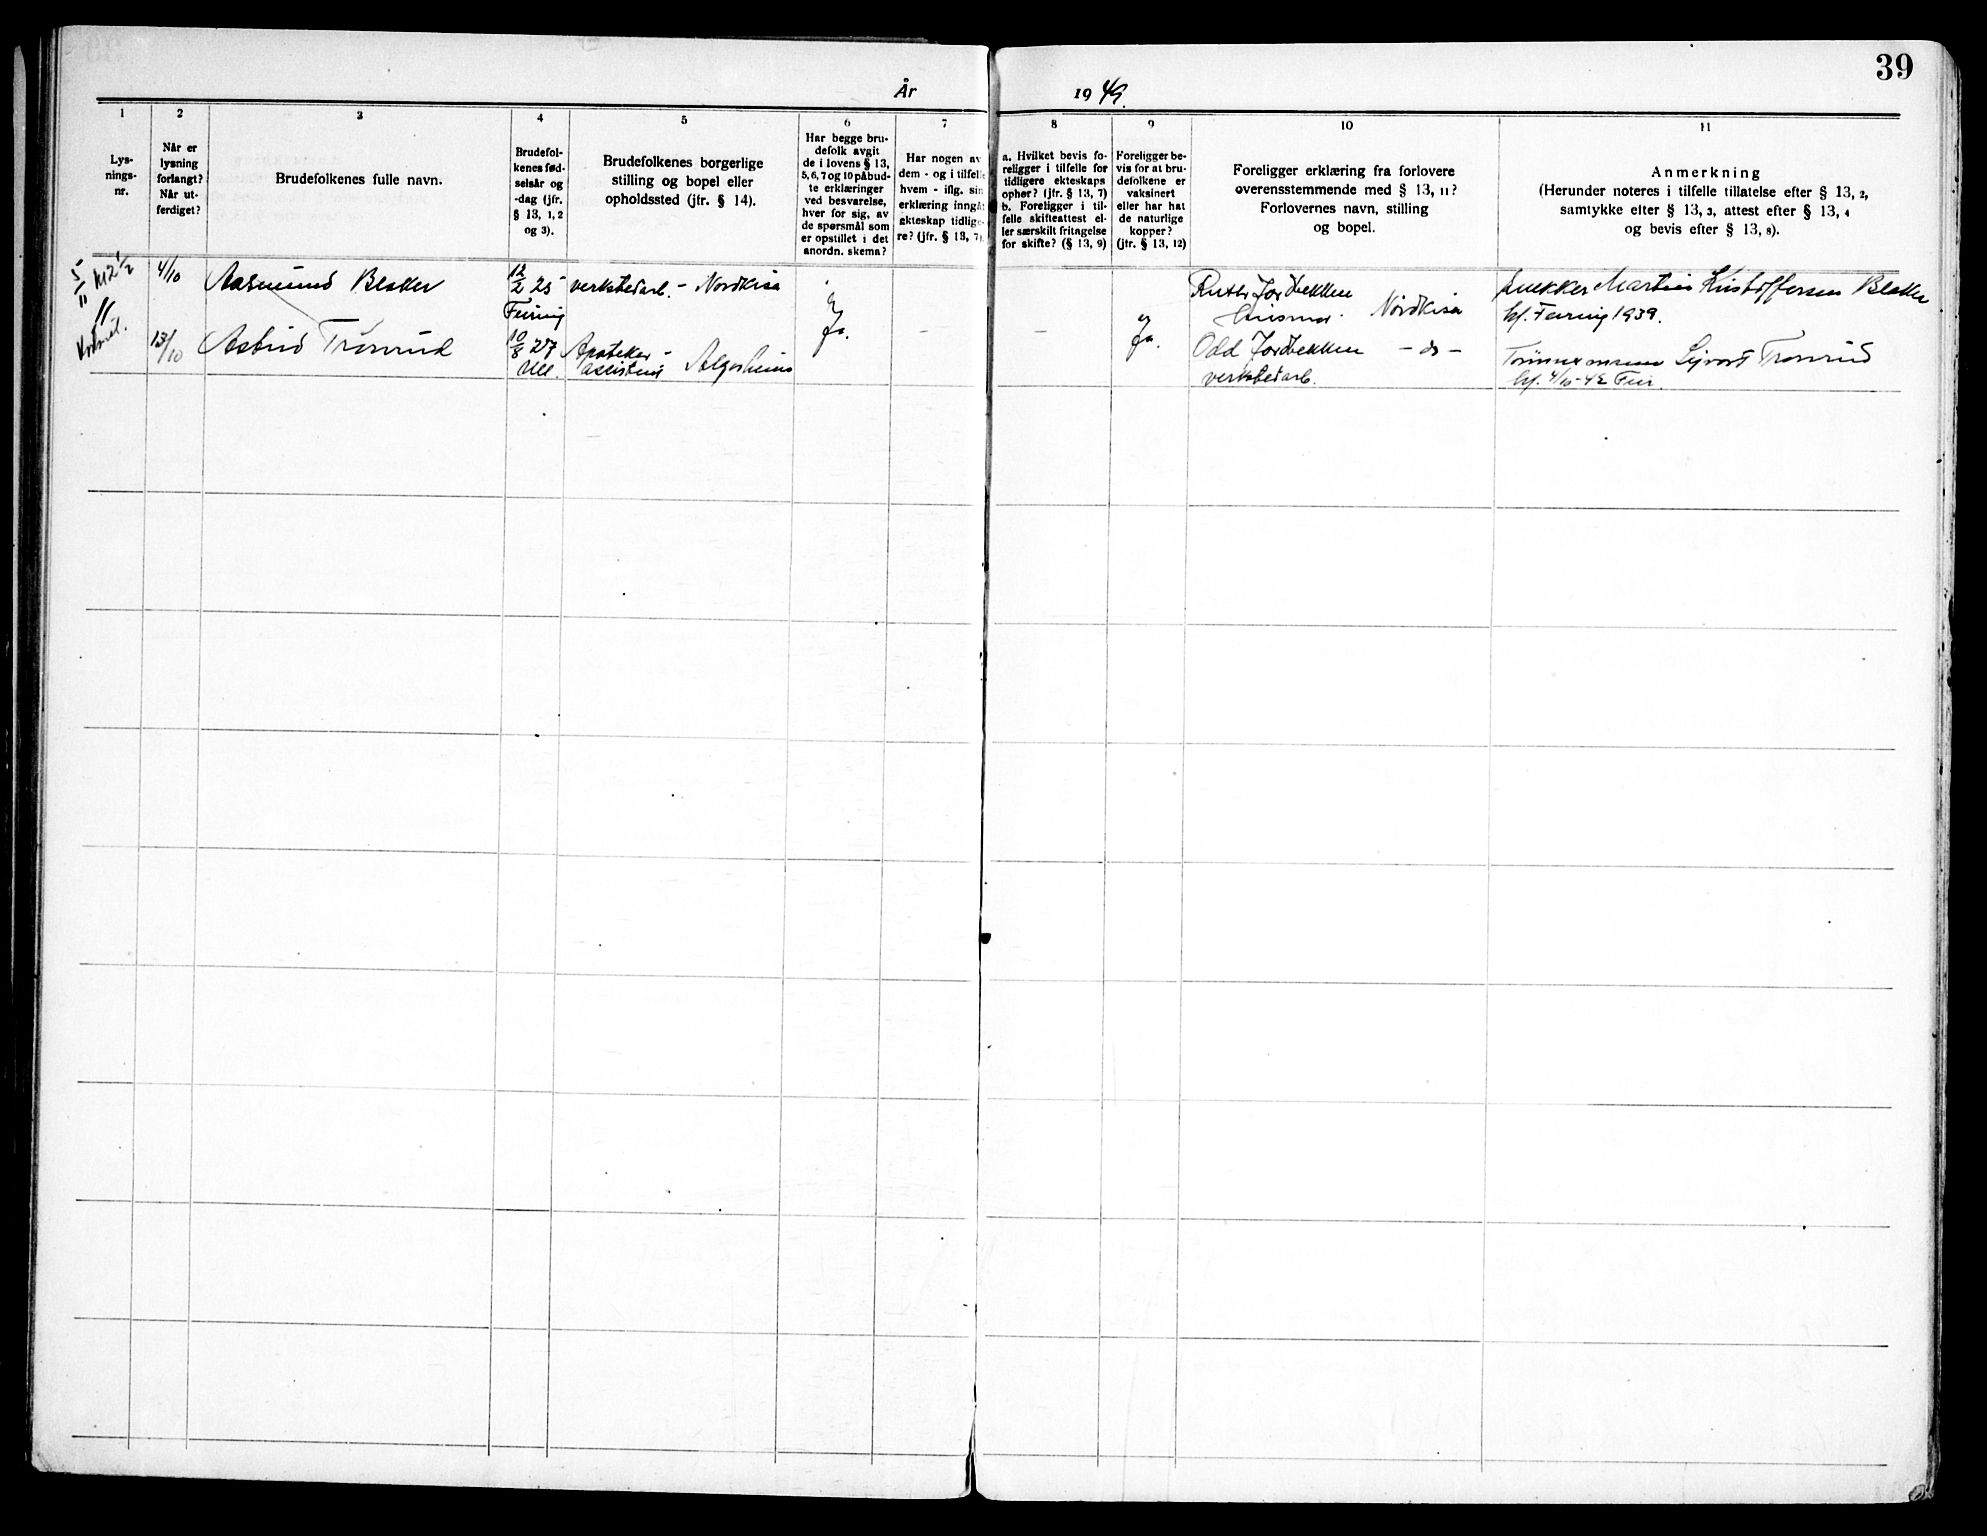 39
År 1949.
1
Lys-
nings-
nr.
2
Når er
lysning
forlangt?
Når ut-
ferdiget?
3
Brudefolkenes fulle navn.
4
Brudefol-
kenes fød-
selsår og
-dag (jfr.
§ 13, 1, 2
og 3).
5
Brudefolkenes borgerlige
stilling og bopel eller
opholdssted (jfr. § 14).
6
Har begge bru-
defolk avgit
de i lovens § 13,
5, 6, 7 og 10 påbud-
te erklæringer
ved besvarelse,
hver for sig, av
de spørsmål som
er opstillet i det
anordn. skema?
7
Har nogen av
dem - og i tilfelle
hvem - iflg. sin
erklæring inngåt
ekteskap tidlige-
re? (jfr. § 13, 7).
8
a. Hvilket bevis fo-
religger i tilfelle for
tidligere ekteskaps
ophør? (jfr. § 13, 7)
b. Foreligger i til-
felle skifteattest el-
ler særskilt fritagelse
for skifte? (§ 13, 9)
9
Foreligger be-
vis for at bru-
defolkene er
vaksinert
eller har hat
de naturlige
kopper?
(jfr. § 13, 12)
10
Foreligger erklæring fra forlovere
overensstemmende med § 13, 11?
Forlovernes navn, stilling
og bopel.
11
Anmerkning
(Herunder noteres i tilfelle tillatelse efter § 13, 2,
samtykke efter § 13, 3, attest efter § 13, 4
og bevis efter § 13, 8).
5/11 kl 2 1/2
11
4/10
Aasmund Blekker
12/2 25
Feiring
verkstedarb. - Nordkisa
Ja.
-
-
Ja.
Ruth Jordbekken
Husmor. Nordkisa
Martin Kristoffersen Blekker
Feiring 1939.
13/10
Astrid Trønrud
10/8 27
Ull.
Apoteker-
assistent Algarheim
Odd Jordbekken - do -
verkstedarb.
Tømmermann Syvert Trønrud
4/10-42 Feir.